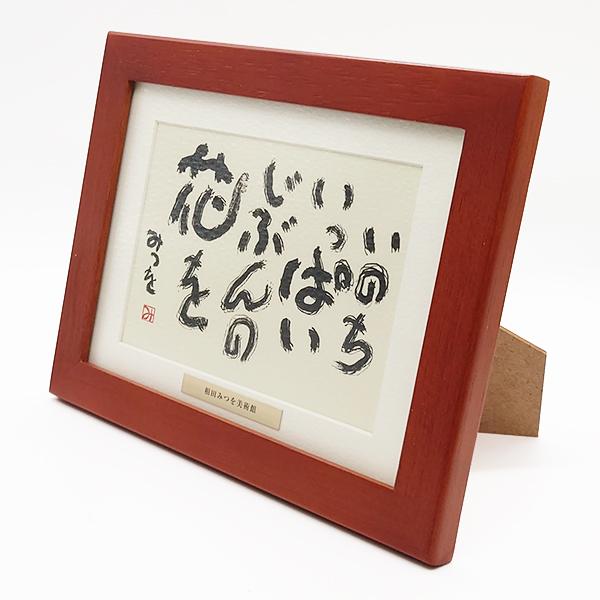 いのち
いっぱい
じぶんの
花を
みつを
相田みつを美術館